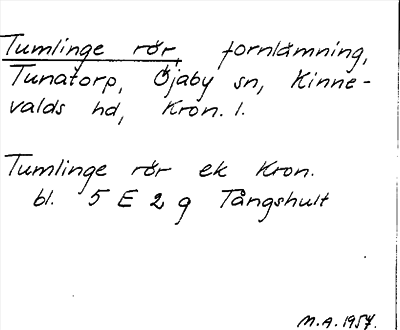 Tumlinge rör, fornlämning,
Tunatorp, Öjaby sn, Kinne-
valds hd, Kron. l.
Tumlinge rör ek Kron.
bl. 5 E 2 g Tångshult
M.A. 1957.